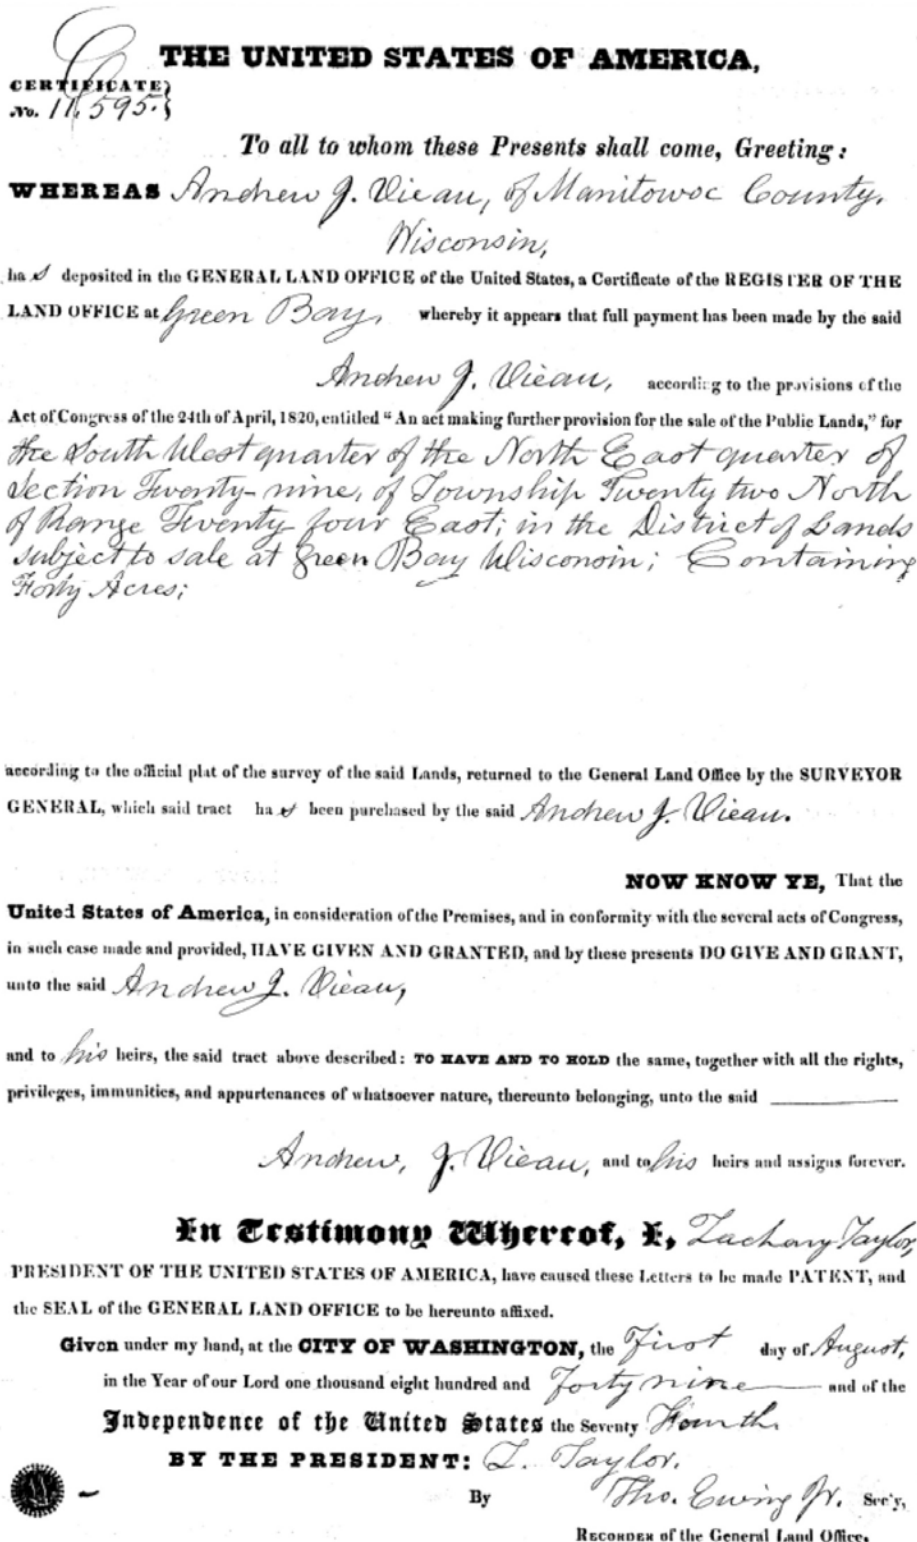 THE UNITED STATES OF AMERICA,
CERTIFICATE
No. 11,595.
To all to whom these Presents shall come, Greeting:
WHEREAS Andrew J. Vieau, of Manitowoc County,
Wisconsin,
has deposited in the GENERAL LAND OFFICE of the United States, a Certificate of the REGISTER OF THE
LAND OFFICE at Green Bay, whereby it appears that full payment has been made by the said
Andrew J. Vieau, according to the provisions of the
Act of Congress of the 24th of April, 1820, entitled "An act making further provision for the sale of the Public Lands," for
the South West quarter of the North East quarter of
Section Twenty-nine, of Township Twenty two North
of Range Twenty four East; in the District of Lands
subject to sale at Green Bay Wisconsin; Containing
Forty Acres;
according to the official plat of the survey of the said Lands, returned to the General Land Office by the SURVEYOR
GENERAL, which said tract has been purchased by the said Andrew J. Vieau.
NOW KNOW YE, That the
United States of America, in consideration of the Premises, and in conformity with the several acts of Congress,
in such case made and provided, HAVE GIVEN AND GRANTED, and by these presents DO GIVE AND GRANT,
unto the said Andrew J. Vieau,
and to his heirs, the said tract above described: TO HAVE AND TO HOLD the same, together with all the rights,
privileges, immunities, and appurtenances of whatsoever nature, thereunto belonging, unto the said
Andrew, J. Vieau, and to his heirs and assigns forever.
In Testimony Whereof, I, Zachary Taylor,
PRESIDENT OF THE UNITED STATES OF AMERICA, have caused these Letters to be made PATENT, and
the SEAL of the GENERAL LAND OFFICE to be hereunto affixed.
Given under my hand, at the CITY OF WASHINGTON, the First day of August,
in the Year of our Lord one thousand eight hundred and Forty nine and of the
Independence of the United States the Seventy Fourth
BY THE PRESIDENT: Z. Taylor.
By Tho. Ewing Jr. Sec'y,
RECORDER of the General Land Office.